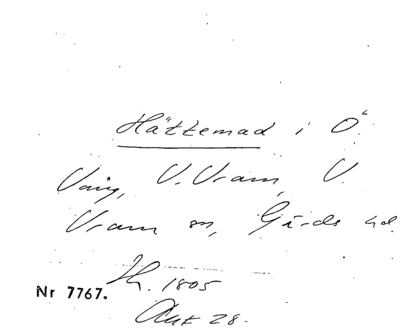 Hättemad i Ö.
Vång, V. Vram, V.
Vram sn, Gärds hd.
Nr 7767.
1805
Akt 28.